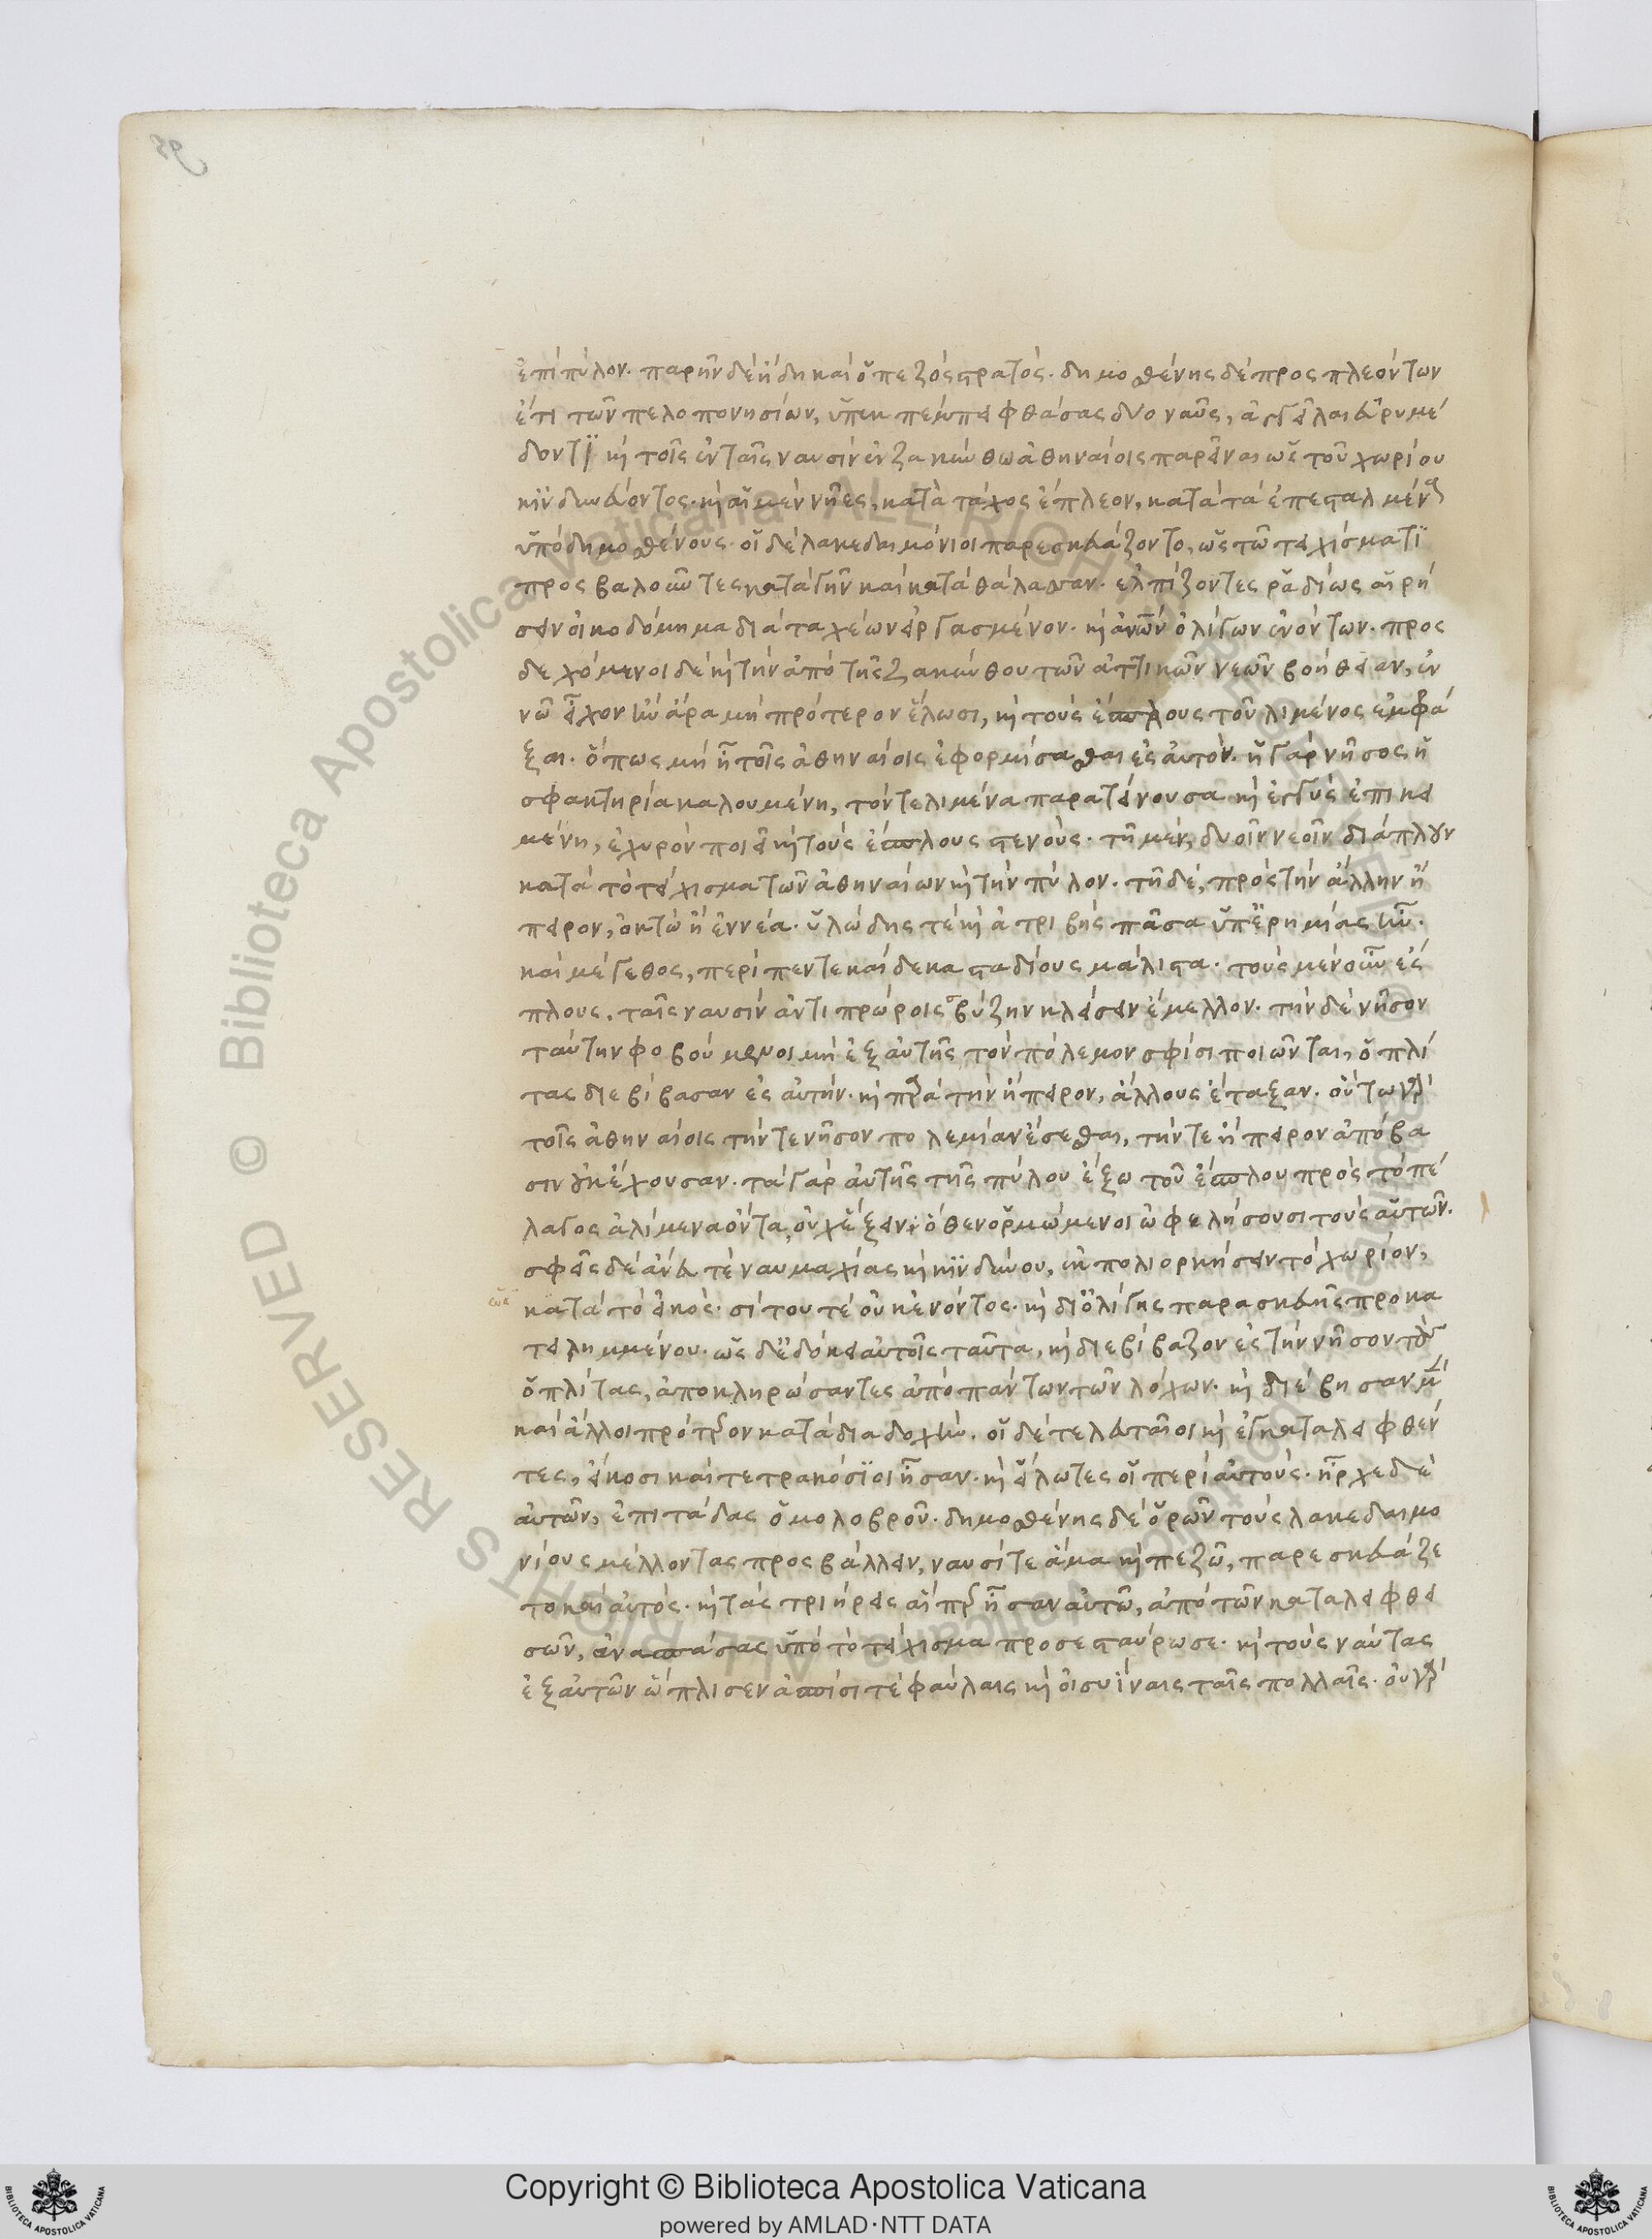 ἐπὶ πύλον. παρῆν δὲ ἤδη καὶ ὁ πεζὸς στρατός. δημοσθένης δὲ προσπλεόντων
ἔτι τῶν πελοπονησίων, ὑπεκπέμπει φθάσας δύο ναῦς, ἀγγεῖλαι εὐρυμέ
δοντι καὶ τοῖς ἐν ταῖς ναυσὶν ἐν ζακύνθω ἀθηναίοις παρεῖναι ὡς τοῦ χωρίου
κινδυνεύοντος. καὶ αἱ μὲν νῆες, κατὰ τάχος ἔπλεον, κατὰ τὰ ἐπεσταλμένα
ὑπὸ δημοσθένους. οἱ δὲ λακεδαιμόνιοι παρεσκευάζοντο, ὡς τῶ τειχίσματι
προσβαλοῦντες κατὰ γῆν καὶ κατὰ θάλασσαν. ἐλπίζοντες ῥαδίως αἱρή
σειν οἰκοδόμημα διὰ ταχέων εἰργασμένον. καὶ ἀνῶν ὀλίγων ἐνόντων. προσ
δεχόμενοι δὲ καὶ τὴν ἀπὸ τῆς ζακύνθου τῶν ἀττικῶν νεῶν βοήθειαν, ἐν
νῶ εἶχον ἢν ἄρα μὴ πρότερον ἕλωσι, καὶ τοὺς ἔσπλους τοῦ λιμένος ἐμφρά
ξαι. ὅπως μὴ ᾖ τοῖς ἀθηναίοις ἐφορμίσασθαι ἐς αὐτόν. ἡ γὰρ νῆσος ἡ
σφακτηρία καλουμένη, τόν τε λιμένα παρατείνουσα καὶ ἐγγὺς ἐπικει
μένη, ἐχυρὸν ποιεῖ καὶ τοὺς ἔσπλους στενούς. τῆ μὲν, δυοῖν νεοῖν διάπλουν
κατὰ τὸ τείχισμα τῶν ἀθηναίων καὶ τὴν πύλον. τῆ δὲ, πρὸς τὴν ἄλλην ἤ
πειρον, ὀκτὼ ἢ ἐννέα. ὑλώδης τὲ καὶ ἀτριβὴς πᾶσα ὑπ' ἐρημίας ἦν.
καὶ μέγεθος, περὶ πεντεκαίδεκα σταδίους μάλιστα. τοὺς μὲν οὖν ἔσ
πλους, ταῖς ναυσὶν ἀντιπρώροις βύζην κλείσειν ἔμελλον. τὴν δὲ νῆσον
ταύτην φοβούμενοι μὴ ἐξ αὐτῆς τὸν πόλεμον σφίσι ποιῶνται, ὁπλί
τας διεβίβασαν ἐς αὐτήν. καὶ παρὰ τὴν ἤπειρον, ἄλλους ἔταξαν. οὕτω γὰρ
τοῖς ἀθηναίοις τήν τε νῆσον πολεμίαν ἔσεσθαι, τήν τε ἤπειρον ἀπόβα
σιν οὐκ ἔχουσαν. τὰ γὰρ αὐτῆς τῆς πύλου ἔξω τοῦ ἔσπλου πρὸς τὸ πέ
λαγος ἀλίμενα ὄντα, οὐχ ἕξειν. ὅθεν ὁρμώμενοι ὠφελήσουσι τοὺς αὑτῶν.
σφεῖς δὲ ἄνευ τὲ ναυμαχίας καὶ κινδύνου, ἐκπολιορκήσειν τὸ χωρίον,
κατὰ τὸ εἰκός. σίτου τὲ οὐκ ἐνόντος. καὶ δι' ὀλίγης παρασκευῆς προκα
τειλημμένου. ὡς δ' ἐδόκει αὐτοῖς ταῦτα, καὶ διεβίβαζον ἐς τὴν νῆσον τοὺς
ὁπλίτας, ἀποκληρώσαντες ἀπὸ πάντων τῶν λόχων. καὶ διέβησαν μὲν
καὶ ἄλλοι πρότερον κατὰ διαδοχήν. οἱ δὲ τελευταῖοι καὶ ἐγκαταλειφθέν
τες, εἴκοσι καὶ τετρακόσιοι ἦσαν. καὶ εἵλωτες οἱ περὶ αὐτούς. ἦρχε δὲ
αὐτῶν, ἐπιτάδας ὁ μολοβροῦ. δημοσθένης δὲ ὁρῶν τοὺς λακεδαιμο
νίους μέλλοντας προσβάλλειν, ναυσί τε ἅμα καὶ πεζῶ, παρεσκευάζε
το καὶ αὐτός. καὶ τὰς τριήρεις αἵπερ ἦσαν αὐτῶ, ἀπὸ τῶν καταλειφθει
σῶν, ἀνασπάσας ὑπὸ τὸ τείχισμα προσεσταύρωσε. καὶ τοὺς ναύτας
ἐξ αὐτῶν ὥπλισεν ἀσπίσι τὲ φαύλαις καὶ οἰσυΐναις ταῖς πολλαῖς. οὐ γὰρ